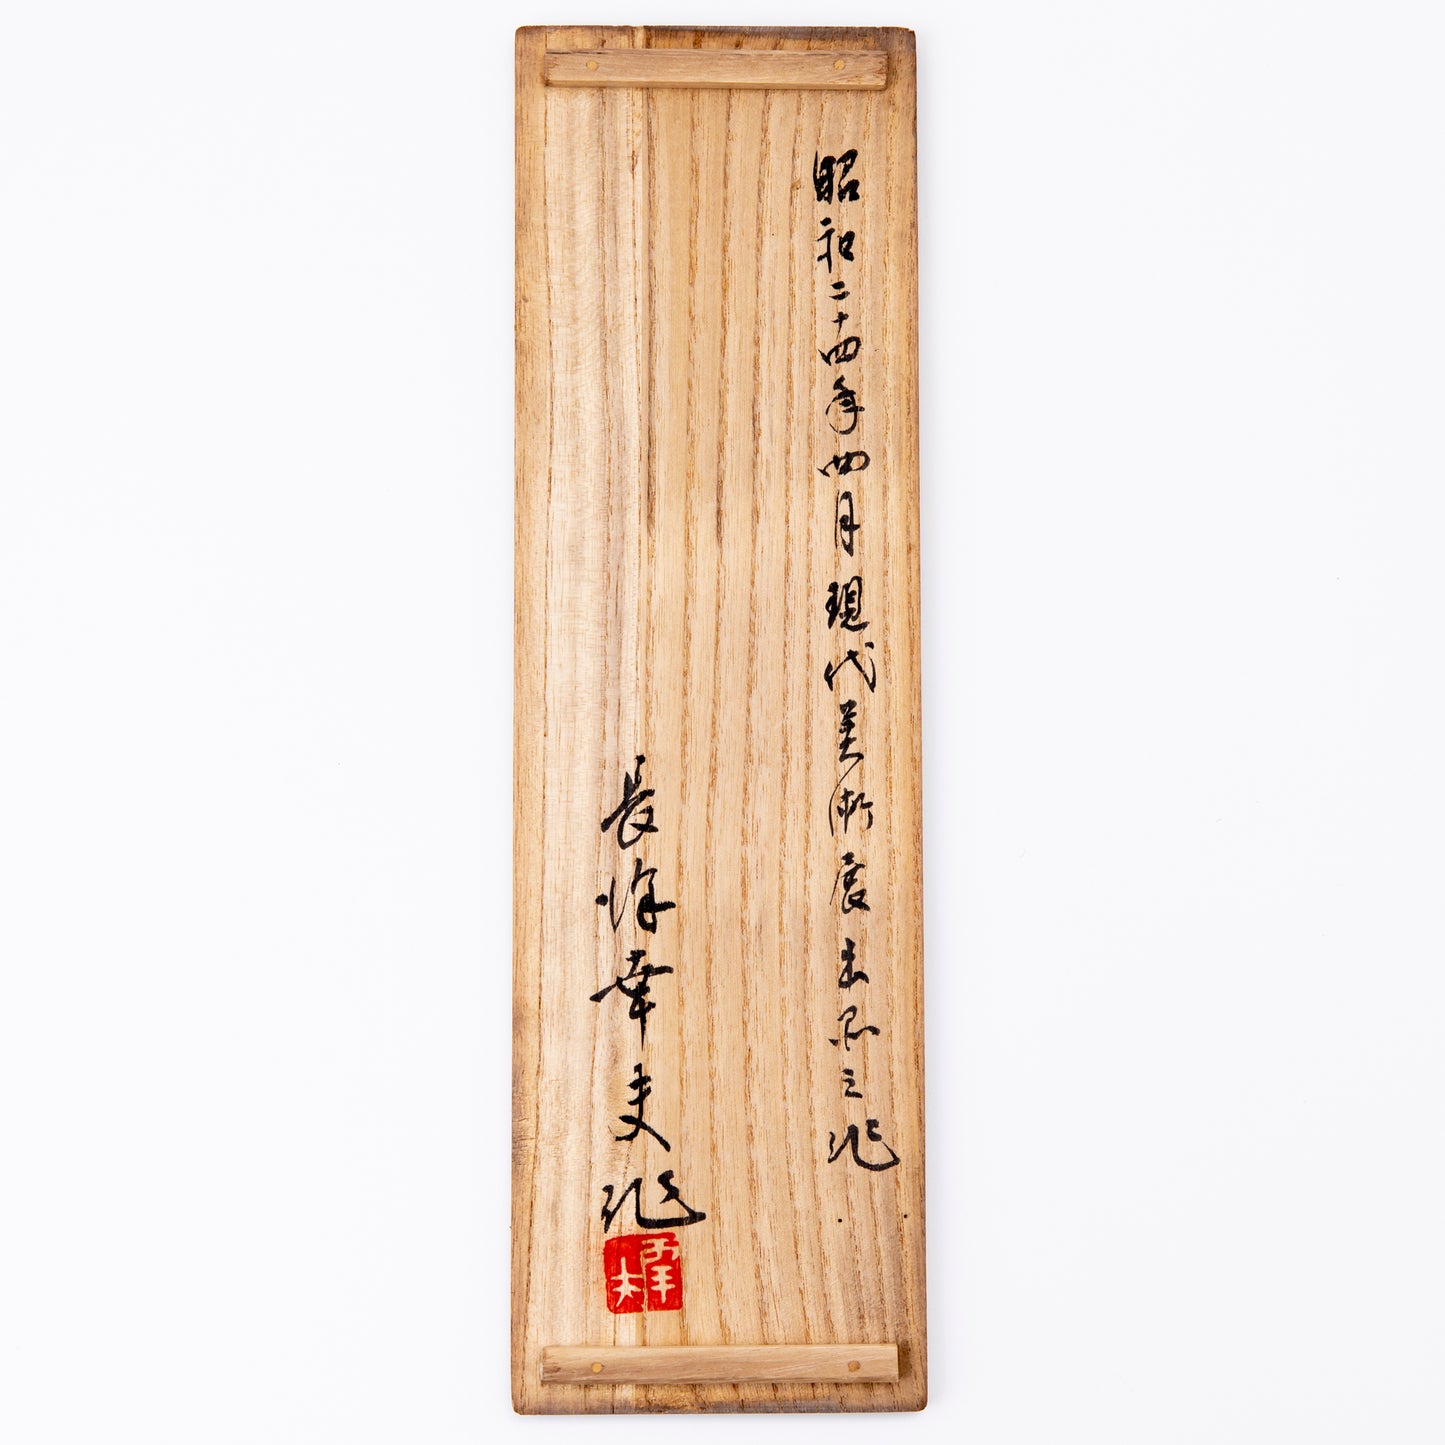 昭和二十四年四月現代美術展出品之作
長惇幸夫作